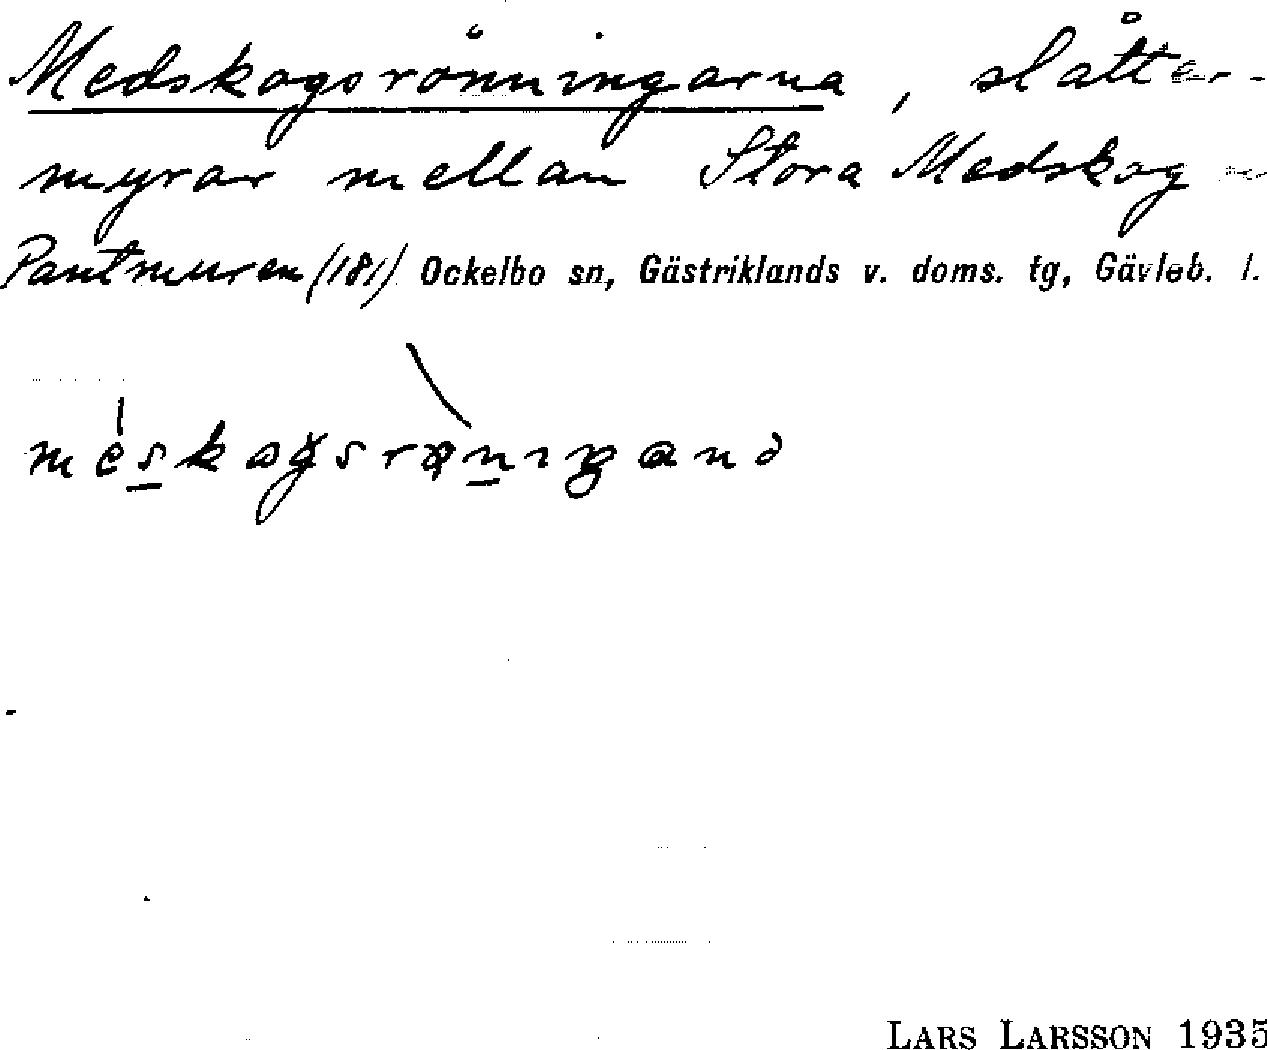 Medskogsrönningarna, slåtter-
myrar mellan Stora Medskog -
Pantmuren (181) Ockelbo sn, Gästriklands v. doms. tg, Gävleb. l.
LARS LARSSON 1935